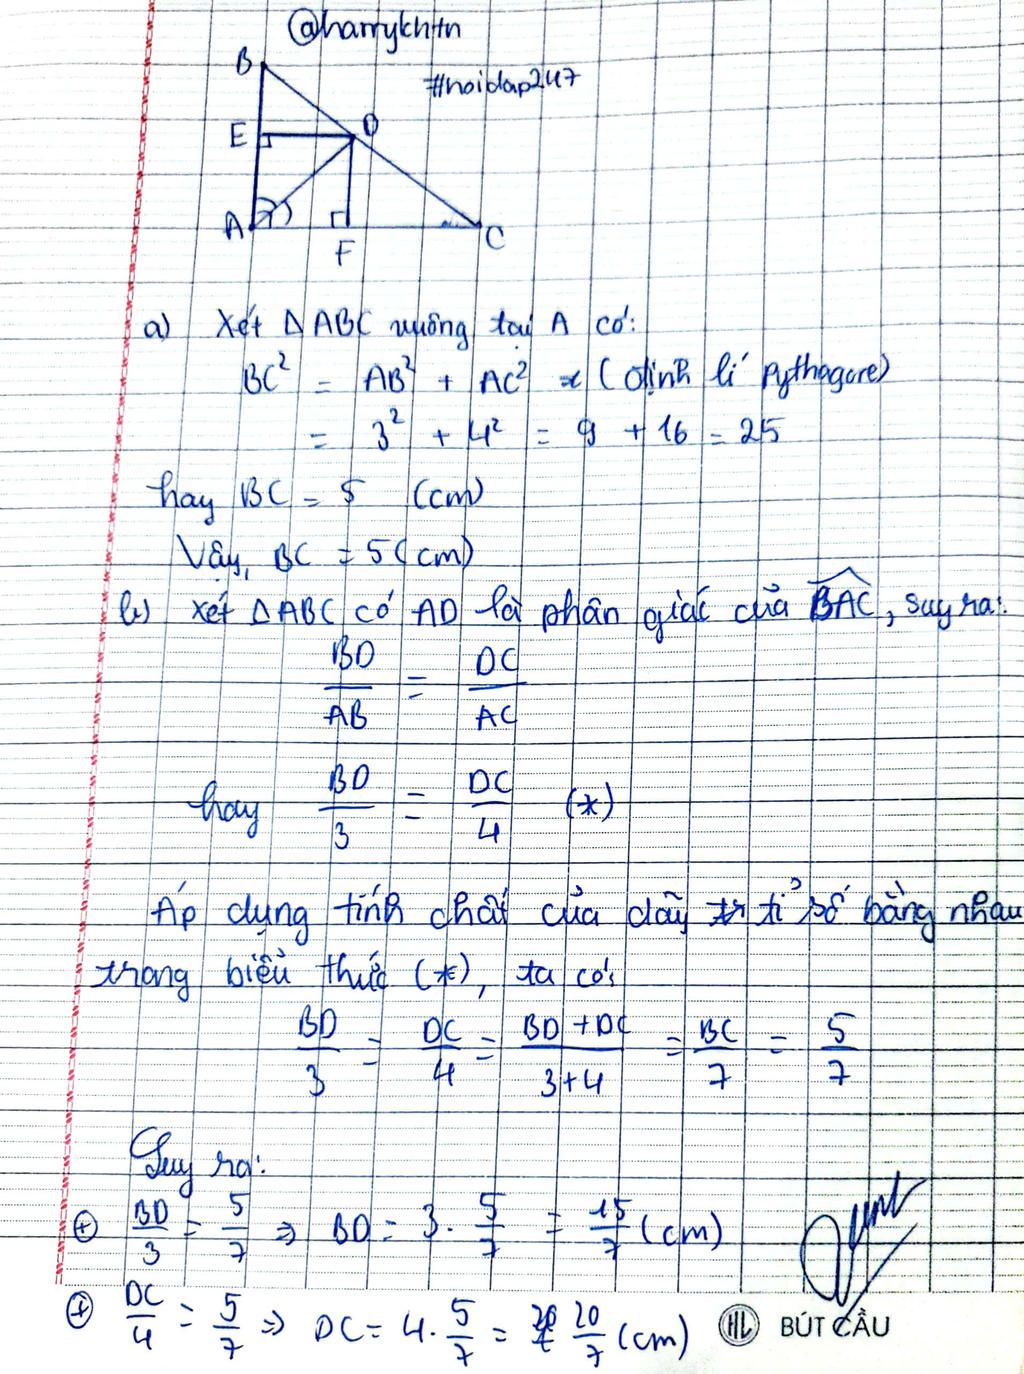 @harrykhtn
#hoidap247
B
E
D
A
F
C
a) Xét ΔABC vuông tại A có:
BC² = AB² + AC² (định lí Pythagore)
= 3² + 4² = 9 + 16 = 25
hay BC = 5 (cm)
Vậy, BC = 5 (cm)
b) Xét ΔABC có AD là phân giác của \widehat{BAC}, suy ra:
BD/AB = DC/AC
hay BD/3 = DC/4 (*)
Áp dụng tính chất của dãy tỉ số bằng nhau
trong biểu thức (*), ta có:
BD/3 = DC/4 = (BD + DC)/(3+4) = BC/7 = 5/7
Suy ra:
⊕ BD/3 = 5/7 ⇒ BD = 3 . 5/7 = 15/7 (cm)
⊕ DC/4 = 5/7 ⇒ DC = 4 . 5/7 = 20/7 (cm)
HL BÚT CẦU